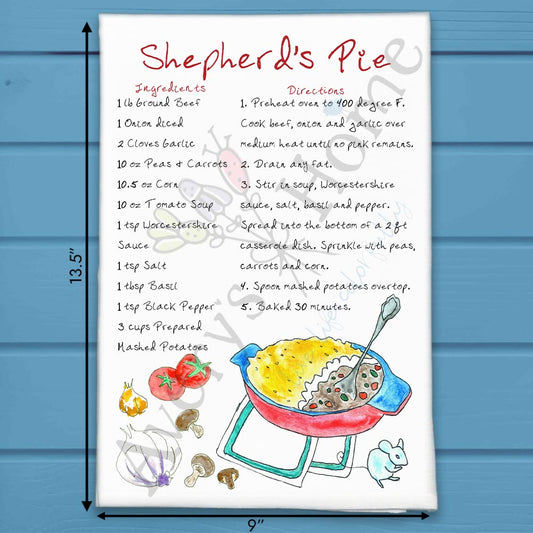 Shepherd's Pie
Ingredients
1 lb Ground Beef
1 Onion diced
2 Cloves Garlic
10 oz Peas & Carrots
10.5 oz Corn
10 oz Tomato Soup
1 tsp Worcestershire
Sauce
1 tsp Salt
1 tbsp Basil
1 tsp Black Pepper
3 cups Prepared
Mashed Potatoes
Directions
1. Preheat oven to 400 degree F.
Cook beef, onion and garlic over
medium heat until no pink remains.
2. Drain any fat.
3. Stir in soup, Worcestershire
sauce, salt, basil and pepper.
Spread into the bottom of a 2 qt
casserole dish. Sprinkle with peas,
carrots and corn.
4. Spoon mashed potatoes overtop.
5. Baked 30 minutes.
Avery's Home
13.5"
9"